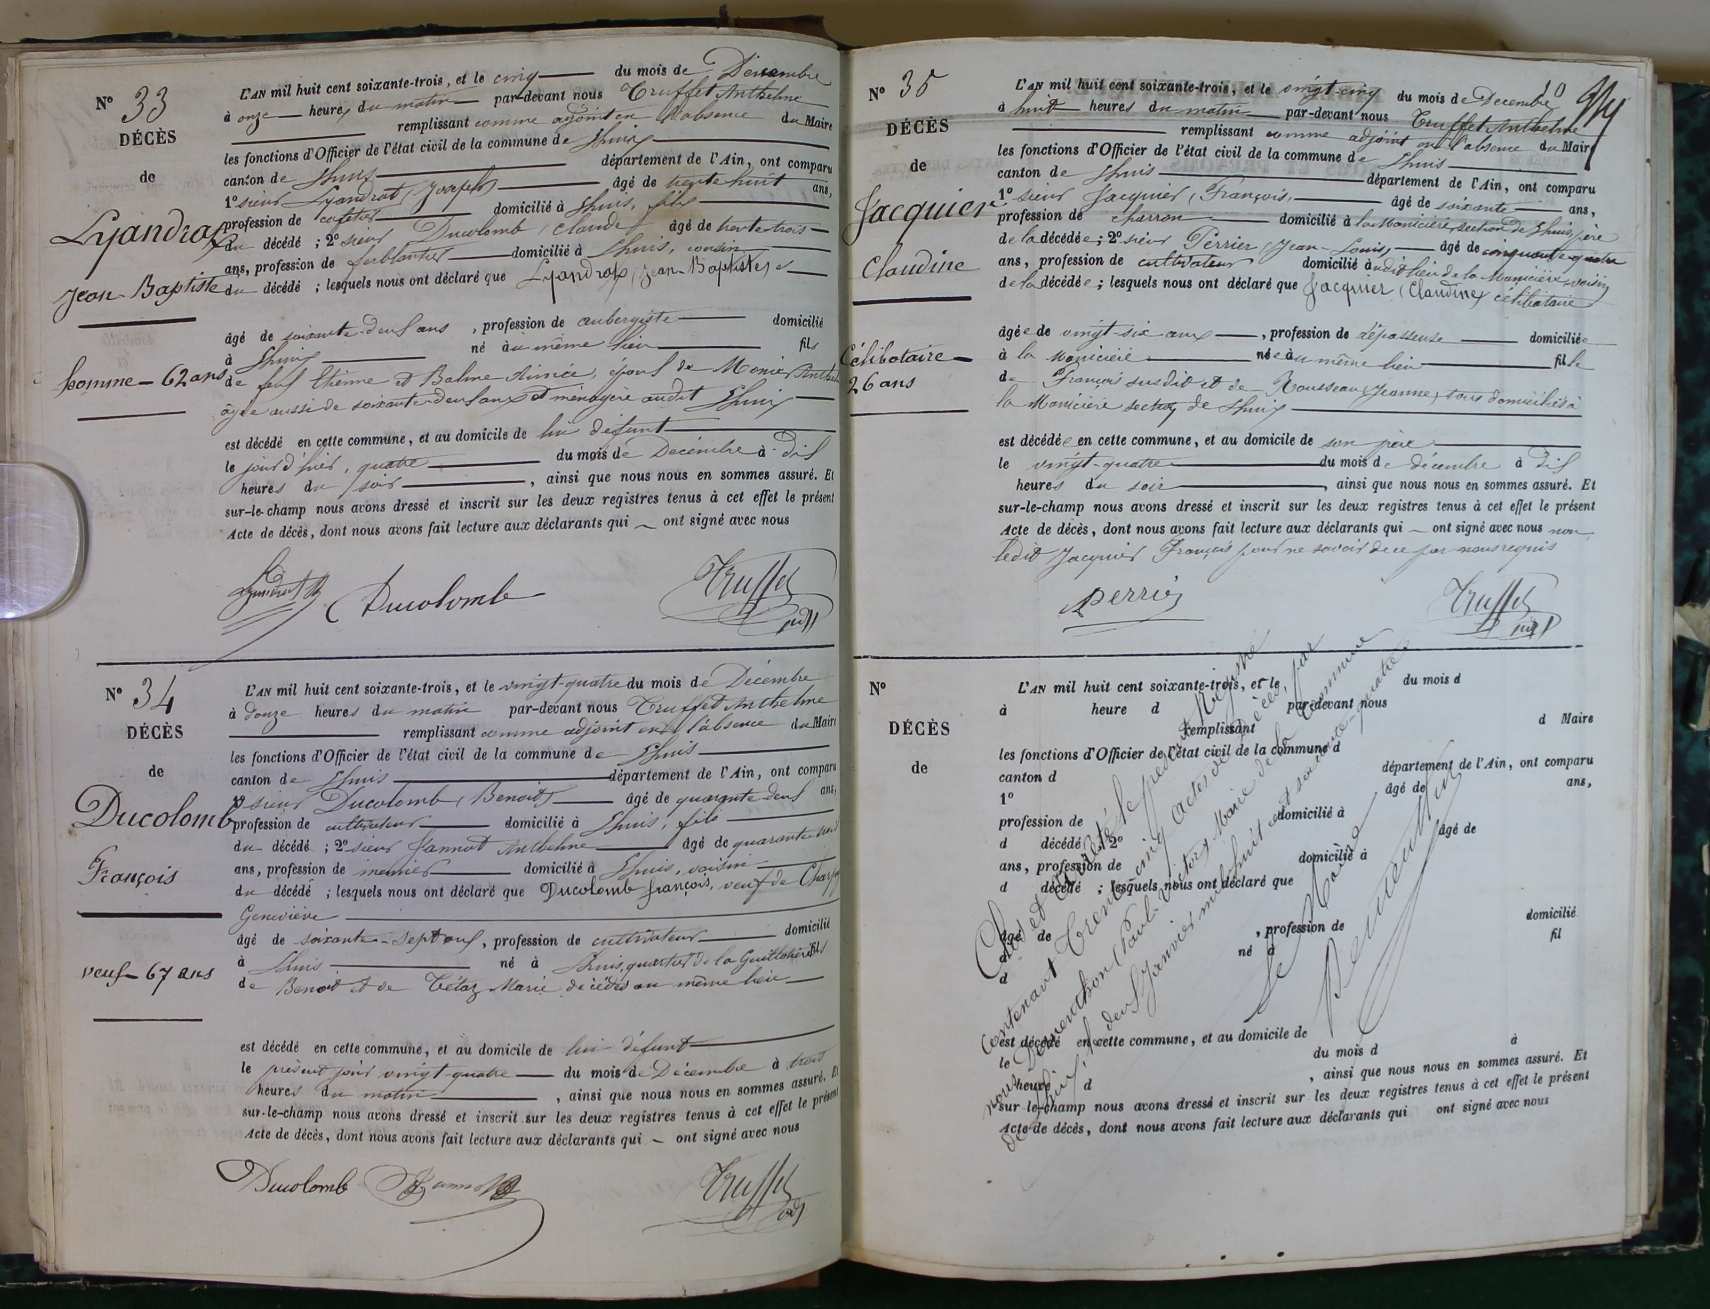 N° 33
DÉCÈS
de
Lyandrax
Jean-Baptiste
homme - 62 ans
L'AN mil huit cent soixante-trois, et le cinq du mois de Décembre
à onze heures du matin par-devant nous Truffet Anthelme
remplissant comme adjoint en l'absence du Maire
les fonctions d'Officier de l'état civil de la commune de Lhuis
canton de Lhuis département de l'Ain, ont comparu
1° sieur Lyandrat (Joseph) âgé de trente huit ans,
profession de domicilié à Lhuis, fils
du décédé ; 2° sieur Ducolomb (Claude) âgé de trente trois
ans, profession de ferblantier domicilié à Lhuis, cousin
du décédé ; lesquels nous ont déclaré que Lyandrax (Jean-Baptiste)
âgé de soixante-deux ans, profession de aubergiste domicilié
à Lhuis né au même lieu fils
de feus Etienne et Balme Aimée, époux de Monier Anthel
âgée aussi de soixante-deux ans et ménagère audit Lhuis
est décédé en cette commune, et au domicile de lui défunt
le jour d'hier, quatre du mois de Décembre à dix
heures du soir, ainsi que nous nous en sommes assuré. Et
sur-le-champ nous avons dressé et inscrit sur les deux registres tenus à cet effet le présent
Acte de décès, dont nous avons fait lecture aux déclarants qui ont signé avec nous
Ducolomb Truffet
N° 34
DÉCÈS
de
Ducolomb
François
veuf - 67 ans
L'AN mil huit cent soixante-trois, et le vingt-quatre du mois de Décembre
à douze heures du matin par-devant nous Truffet Anthelme
remplissant comme adjoint en l'absence du Maire
les fonctions d'Officier de l'état civil de la commune de Lhuis
canton de Lhuis département de l'Ain, ont comparu
1° sieur Ducolomb (Benoit) âgé de quarante deux ans,
profession de cultivateur domicilié à Lhuis, fils
du décédé ; 2° sieur Jannot Anthelme âgé de quarante
ans, profession de meunier domicilié à Lhuis, voisin
du décédé ; lesquels nous ont déclaré que Ducolomb François, veuf de
Geneviève
âgé de soixante-sept ans, profession de cultivateur domicilié
à Lhuis né à Lhuis, quartier de la Guillotière fils
de Benoit et de Tétaz Marie décédés au même lieu
est décédé en cette commune, et au domicile de lui défunt
le présent jour vingt-quatre du mois de Décembre à trois
heures du matin, ainsi que nous nous en sommes assuré. Et
sur-le-champ nous avons dressé et inscrit sur les deux registres tenus à cet effet le présent
Acte de décès, dont nous avons fait lecture aux déclarants qui ont signé avec nous
Ducolomb Jannot Truffet
N° 35
DÉCÈS
de
Jacquier
Claudine
Célibataire
26 ans
L'AN mil huit cent soixante-trois, et le vingt-cinq du mois de Decembre
à huit heures du matin par-devant nous Truffet Anthelme
remplissant comme adjoint en l'absence du Maire
les fonctions d'Officier de l'état civil de la commune de Lhuis
canton de Lhuis département de l'Ain, ont comparu
1° sieur Jacquier (François) âgé de soixante ans,
profession de charron domicilié à la Manicière section de Lhuis, père
de la décédée ; 2° sieur Perrier (Jean-Louis) âgé de cinquante quatre
ans, profession de cultivateur domicilié audit lieu de la Manicière, voisin
de la décédée ; lesquels nous ont déclaré que Jacquier (Claudine) célibataire
âgée de vingt-six ans, profession de domiciliée
à la Manicière née au même lieu fille
de François susdit et de Rousseau (Jeanne) tous domiciliés à
la Manicière section de Lhuis
est décédée en cette commune, et au domicile de son père
le vingt-quatre du mois de décembre à dix
heures du soir, ainsi que nous nous en sommes assuré. Et
sur-le-champ nous avons dressé et inscrit sur les deux registres tenus à cet effet le présent
Acte de décès, dont nous avons fait lecture aux déclarants qui ont signé avec nous non
ledit Jacquier François pour ne savoir de ce par nous requis
Perrier Truffet
N°
DÉCÈS
de
L'AN mil huit cent soixante-trois, et le du mois d
à heure d par-devant nous
remplissant d Maire
les fonctions d'Officier de l'état civil de la commune d
canton d département de l'Ain, ont comparu
1° âgé de ans,
profession de domicilié à
d décédé ; 2° âgé de
ans, profession de domicilié à
d décédé ; lesquels nous ont déclaré que
âgé de , profession de domicilié
à né à fil
d
est décédé en cette commune, et au domicile de
le du mois d à
heure d , ainsi que nous nous en sommes assuré. Et
sur-le-champ nous avons dressé et inscrit sur les deux registres tenus à cet effet le présent
Acte de décès, dont nous avons fait lecture aux déclarants qui ont signé avec nous
Clos et arrêté le présent Registre
contenant trente-cinq actes de Décès, par
nous Dementhon (Paul-Victor) Maire de la Commune
de Lhuis, le deux Janvier mil huit cent soixante-quatre
Le Maire
Dementhon